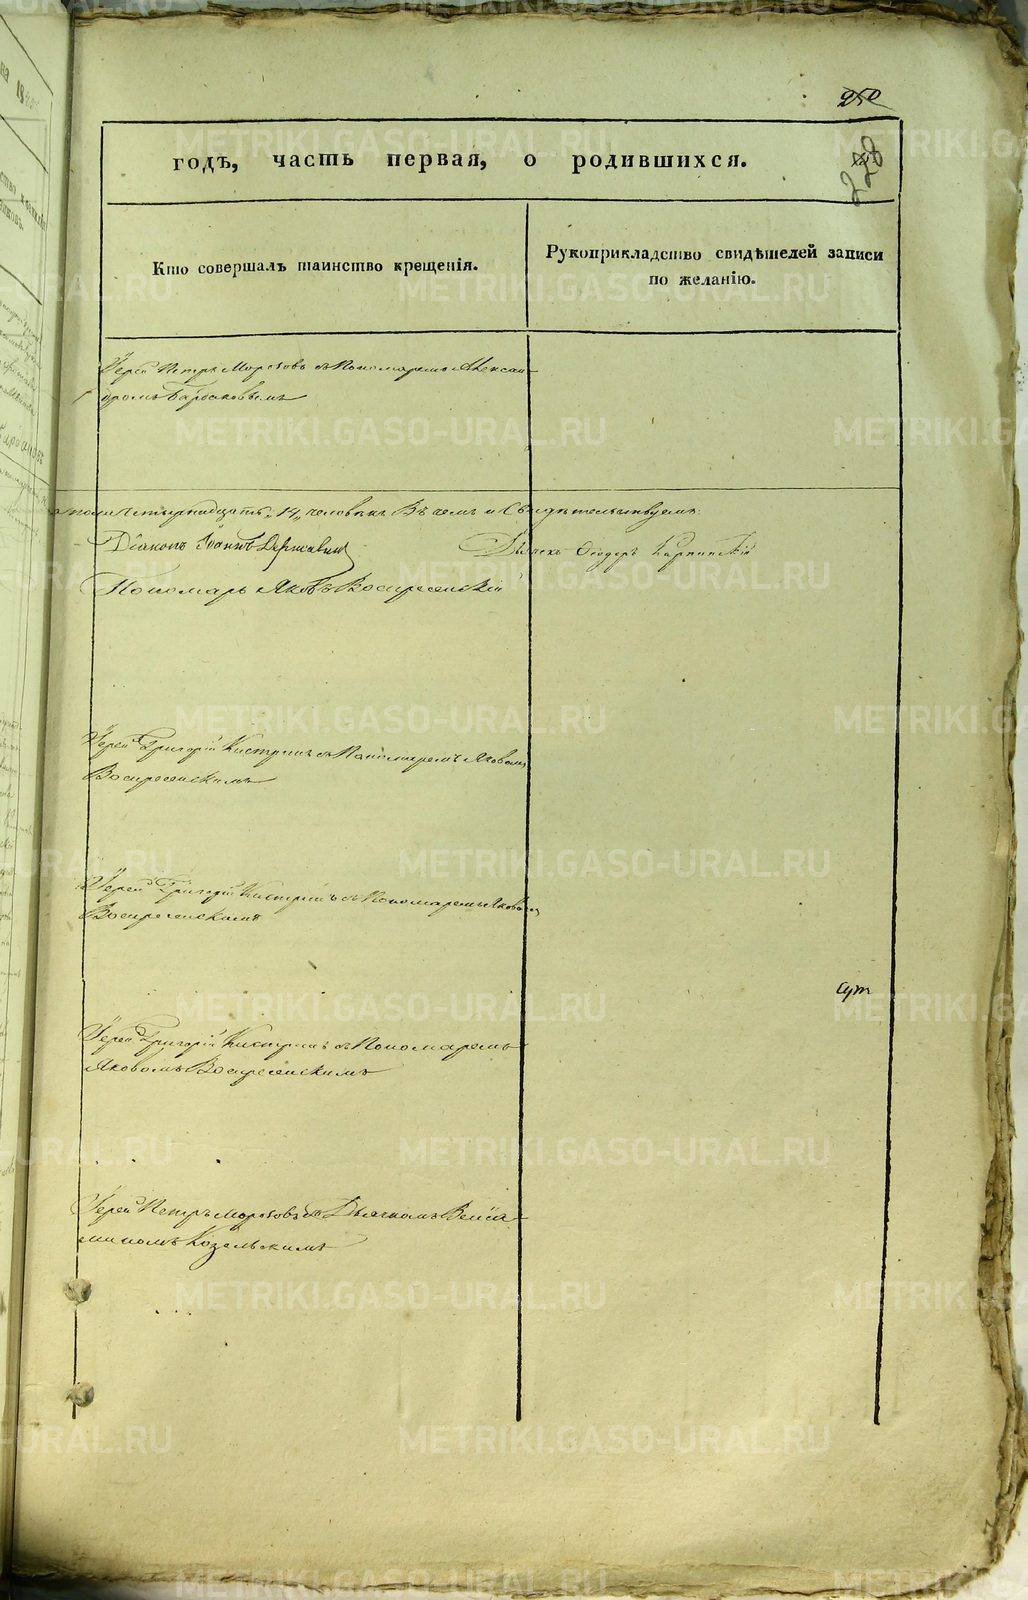 250
228
годъ, часть первая, о родившихся.
Кто совершалъ таинство крещенія.
Рукоприкладство свидѣтелей записи
по желанію.
Іерей Петръ Морозовъ съ Пономаремъ Алексан
дромъ Барбаковымъ
пола четырнадцать "14" человѣкъ Въ чемъ и Свидѣтельствуемъ:
Діаконъ Іоаннъ Державинъ
Дьячекъ Ѳеодоръ Карпинскій
Пономарь Яковъ Воскресенскій
Іерей Григорій Кистринъ съ Пономаремъ Яковомъ
Воскресенскимъ
Іерей Григорій Кистринъ съ Пономаремъ Яковомъ
Воскресенскимъ
Сут
Іерей Григорій Кистринъ съ Пономаремъ
Яковомъ Воскресенскимъ
Іерей Петръ Морозовъ съ Дьячкомъ Венiа
миномъ Козельскимъ
METRIKI.GASO-URAL.RU